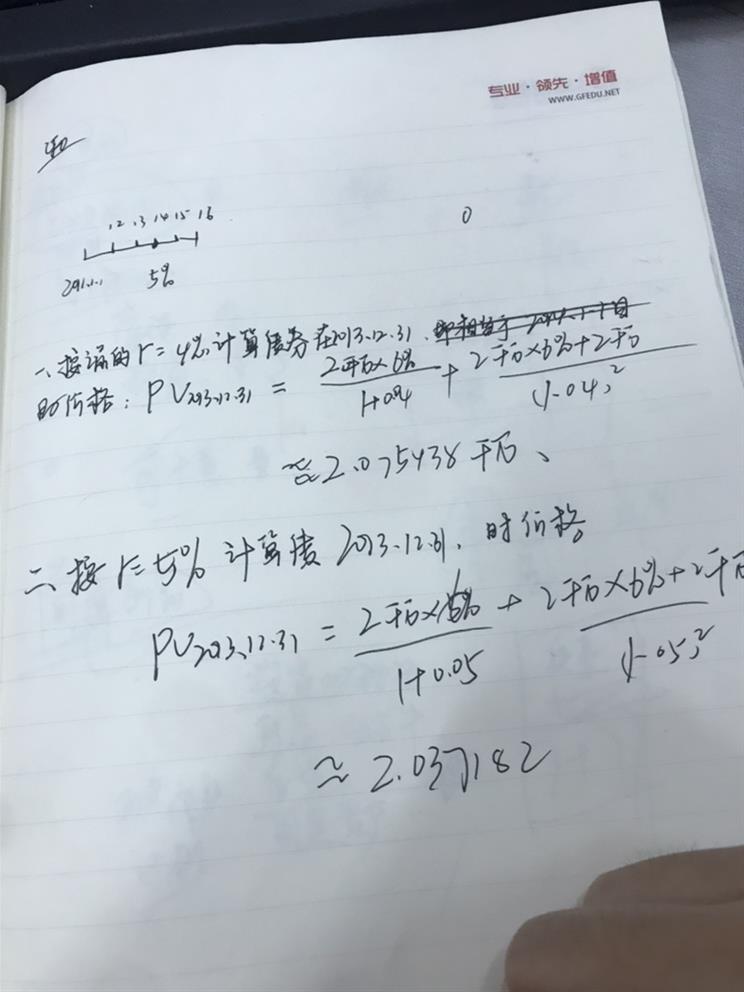 专业·领先·增值
WWW.GFEDU.NET
12 13 14 15 16
0
5%
一、按 的 r=4% 计算债券在2013.12.31、
时价格: PV2013.12.31 = 2千万×6% / 1+0.04 + 2千万×6%+2千万 / (1.04)²
≈2.075438千万、
二、按 r=5% 计算债 2013.12.31. 时价格
PV2013.12.31 = 2千万×6% / 1+0.05 + 2千万×6%+2千万 / (1.05)²
≈ 2.037182